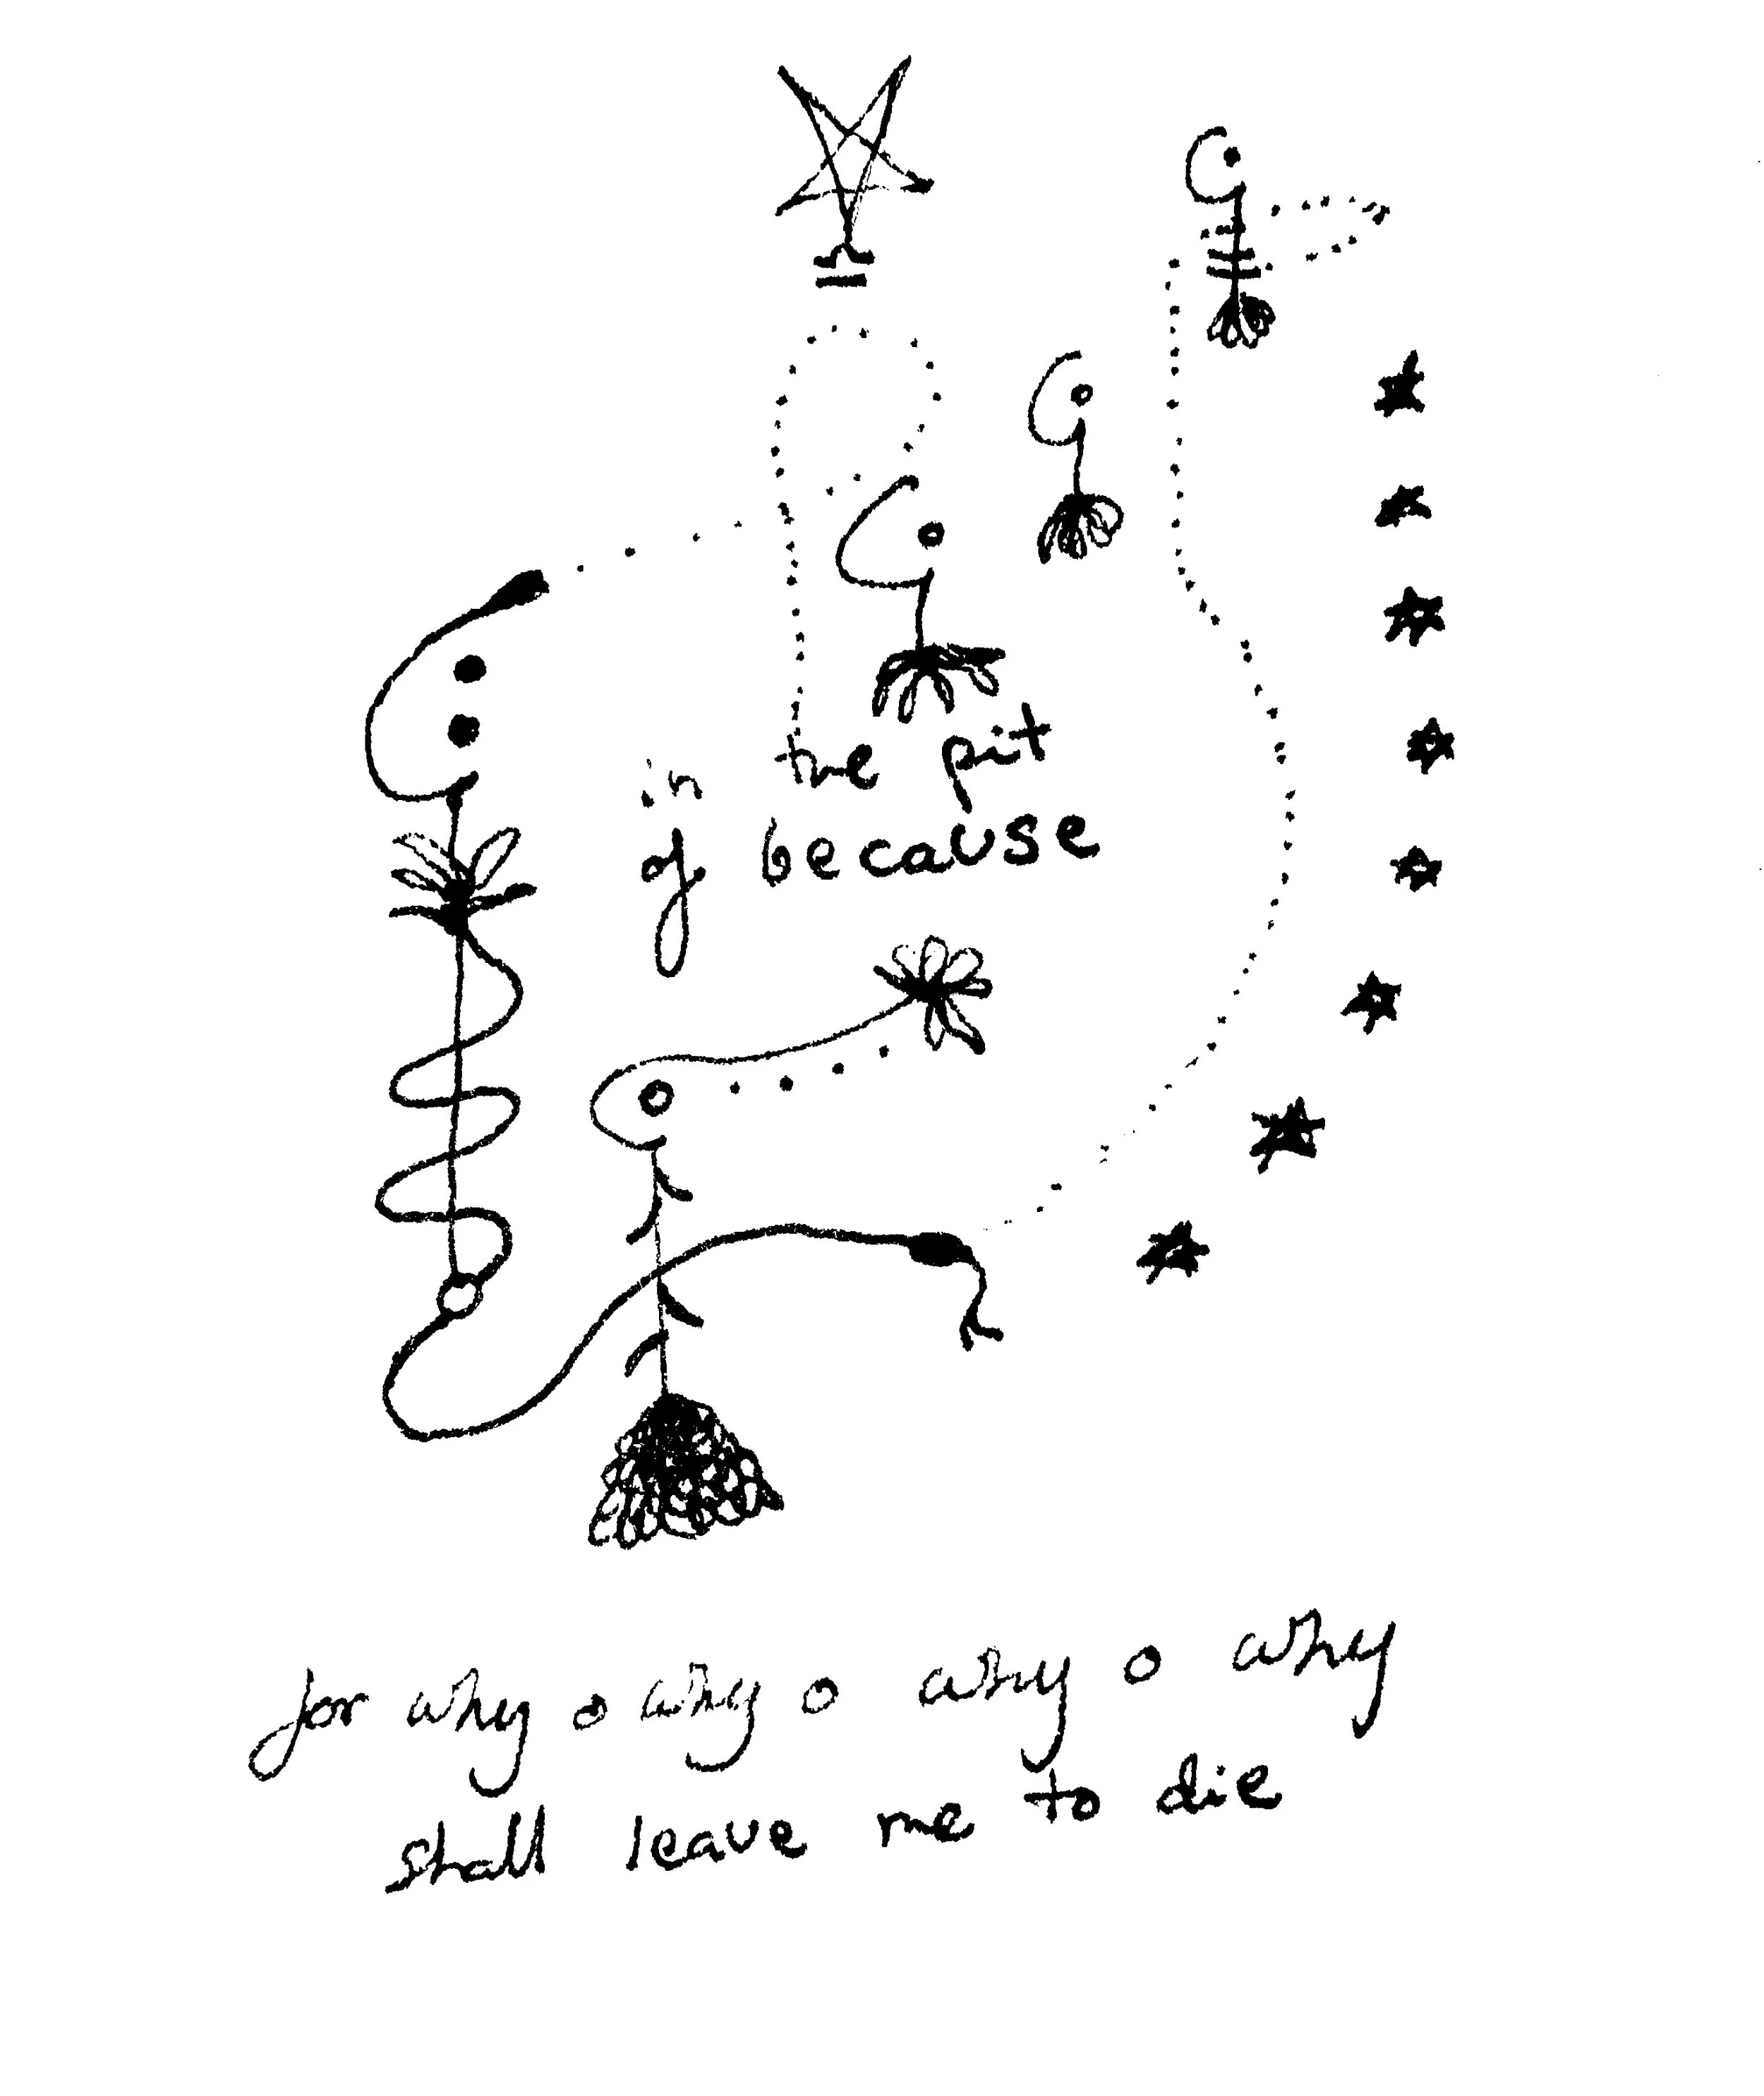 in the pit
of because
for why o why o why o why
shall leave me to die